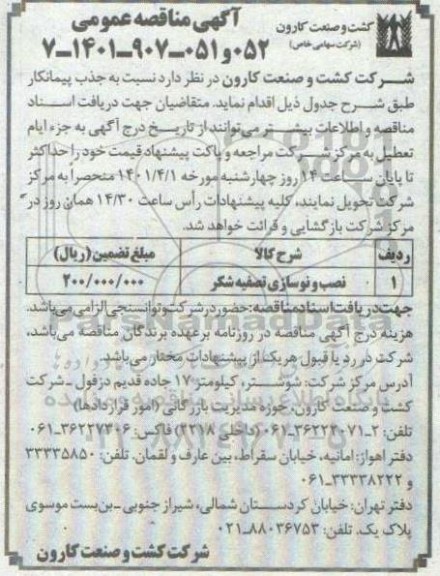 کشت و صنعت کارون
(شرکت سهامی خاص)
آگهی مناقصه عمومی
۰۵۲ و ۰۵۱-۹۰۷-۱۴۰۱-۷
شرکت کشت و صنعت کارون در نظر دارد نسبت به جذب پیمانکار
طبق شرح جدول ذیل اقدام نماید. متقاضیان جهت دریافت اسناد
مناقصه و اطلاعات بیشتر می‌توانند از تاریخ درج آگهی به جزء ایام
تعطیل به مرکز شرکت مراجعه و پاکت پیشنهاد قیمت خود را حداکثر
تا پایان ساعت ۱۴ روز چهارشنبه مورخه ۱۴۰۱/۴/۱ منحصرا به مرکز
شرکت تحویل نمایند، کلیه پیشنهادات رأس ساعت ۱۴/۳۰ همان روز در
مرکز شرکت بازگشایی و قرائت خواهد شد.
ردیف شرح کالا مبلغ تضمین (ریال)
۱ نصب و نوسازی تصفیه شکر ۲۰۰/۰۰۰/۰۰۰
جهت دریافت اسناد مناقصه: حضور در شرکت و توانسنجی الزامی می‌باشد.
هزینه درج آگهی مناقصه در روزنامه برعهده برندگان مناقصه می‌باشد،
شرکت در رد یا قبول هریک از پیشنهادات مختار می‌باشد.
آدرس مرکز شرکت: شوشتر، کیلومتر ۱۷ جاده قدیم دزفول - شرکت
کشت و صنعت کارون، حوزه مدیریت بازرگانی (امور قراردادها)
تلفن: ۲-۳۶۲۲۳۰۷۱-۰۶۱ (داخلی ۲۲۱۸) فاکس: ۳۶۲۲۷۳۰۶-۰۶۱
دفتر اهواز: امانیه، خیابان سقراط، بین عارف و لقمان. تلفن: ۳۳۳۳۵۸۵۰
و ۳۳۳۳۸۲۲۲-۰۶۱
دفتر تهران: خیابان کردستان شمالی، شیراز جنوبی - بن‌بست موسوی
پلاک یک. تلفن: ۸۸۰۳۶۷۵۳-۰۲۱
شرکت کشت و صنعت کارون